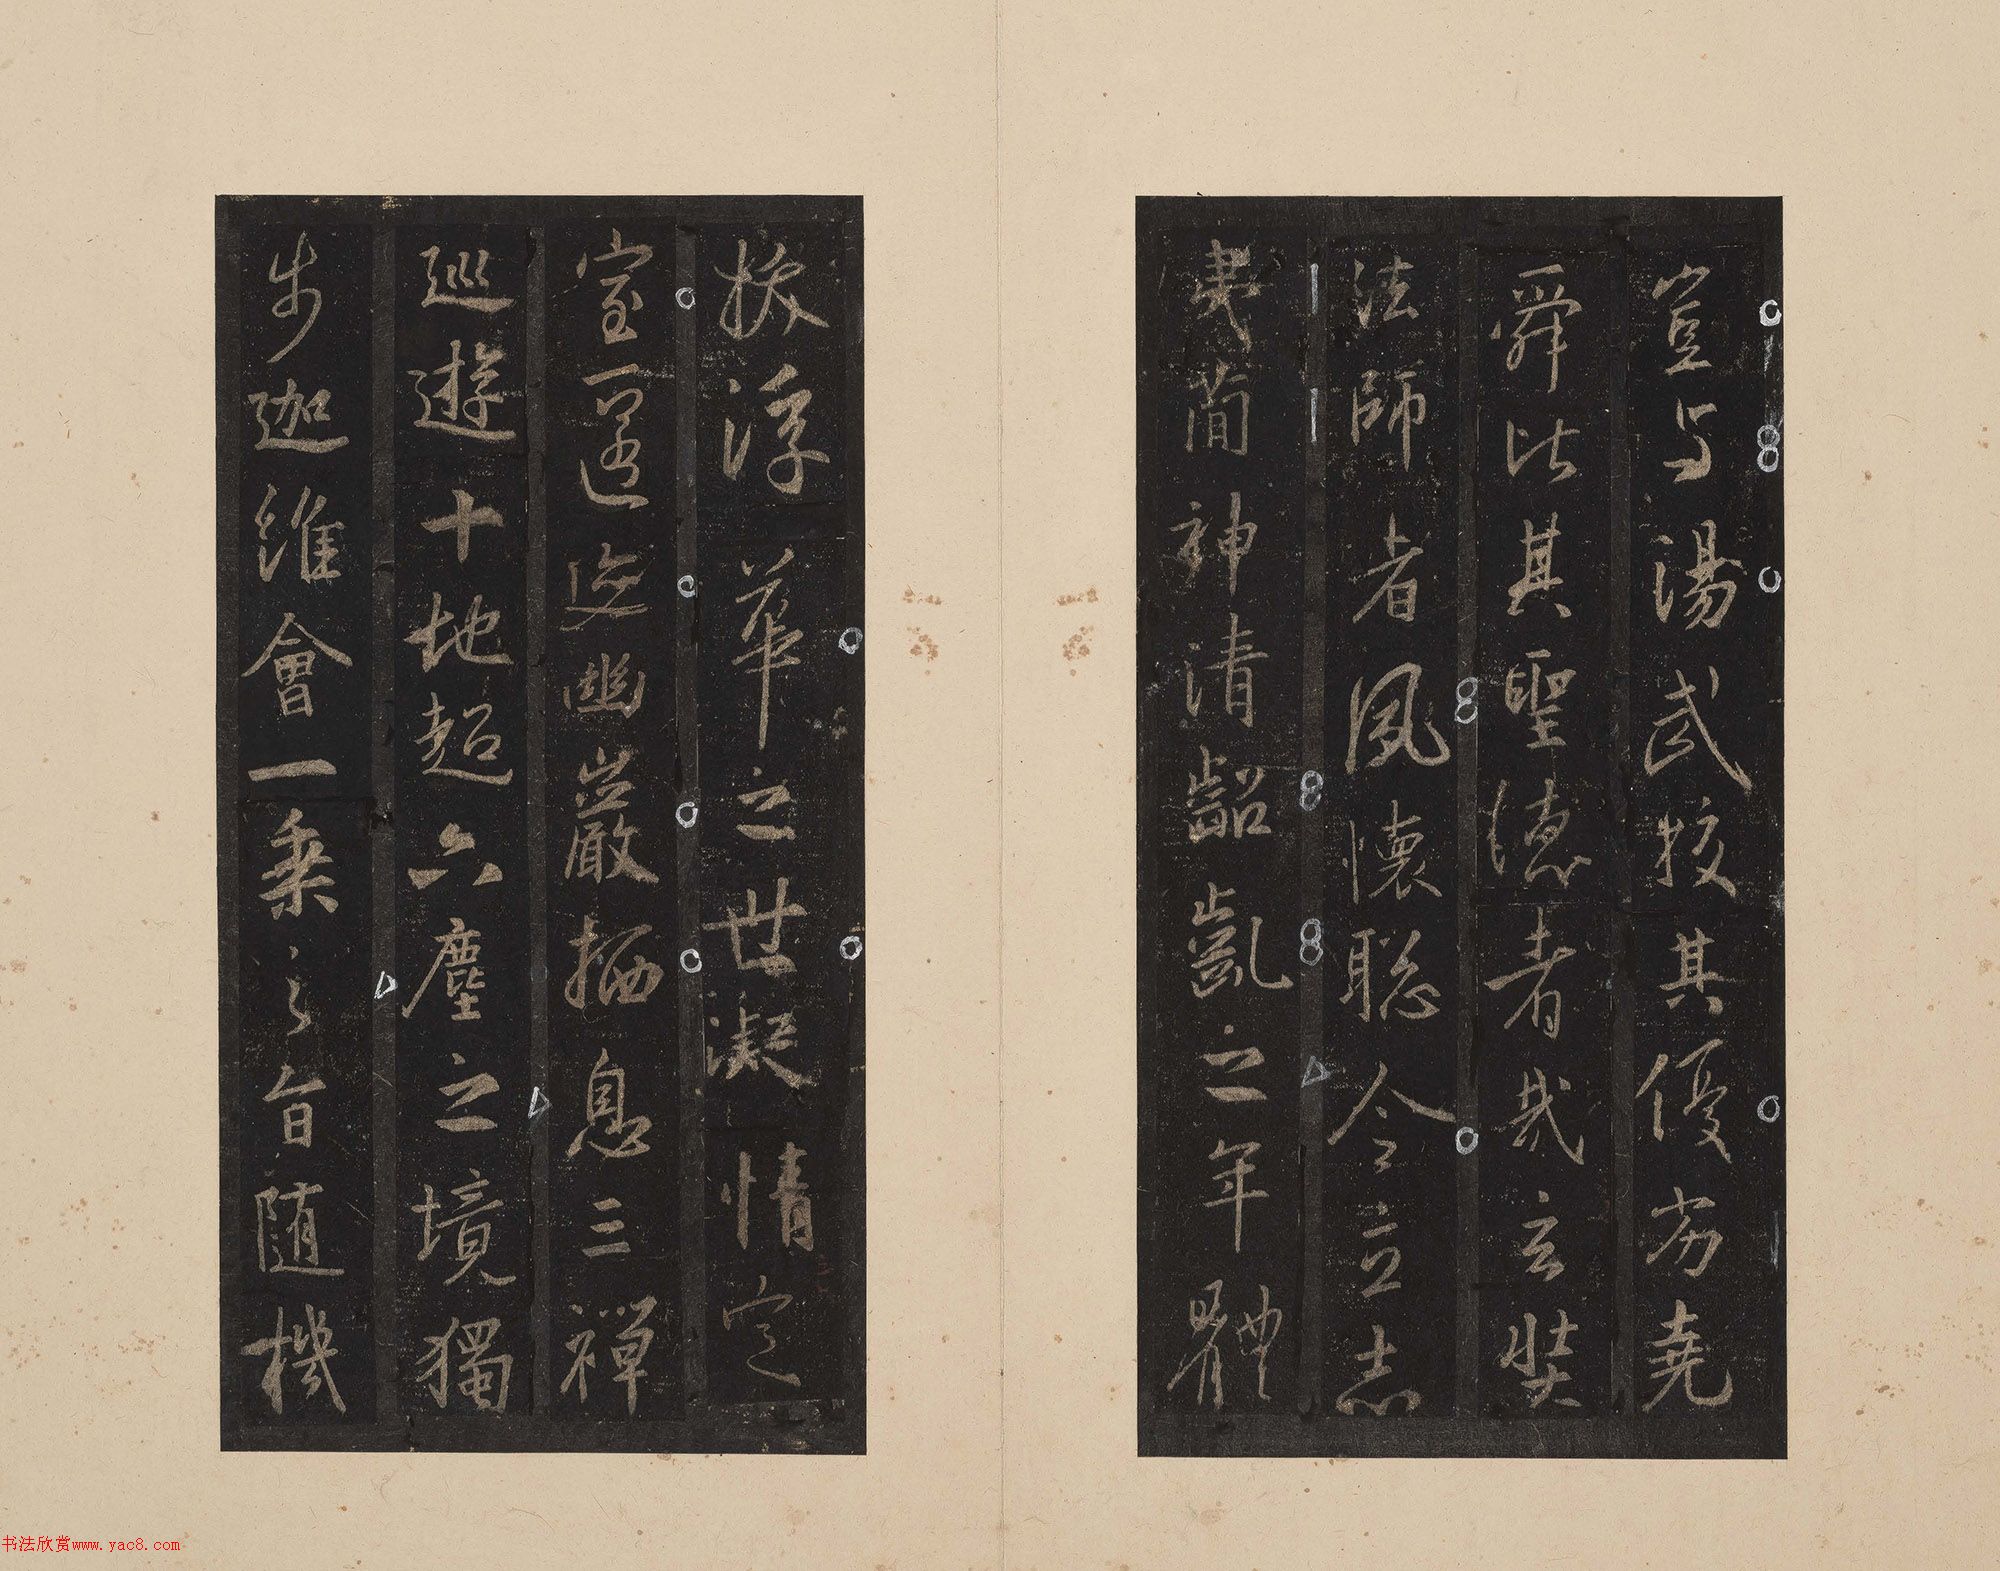 豈与湯武挍其優劣堯
舜比其聖德者哉玄奘
法師者夙懷聡令立志
夷簡神清齠齔之年體
拔浮華之世凝情定
室匿迹幽巖栖息三禅
巡遊十地超六塵之境獨
步迦維會一乘之旨随機
书法欣赏www.yac8.com